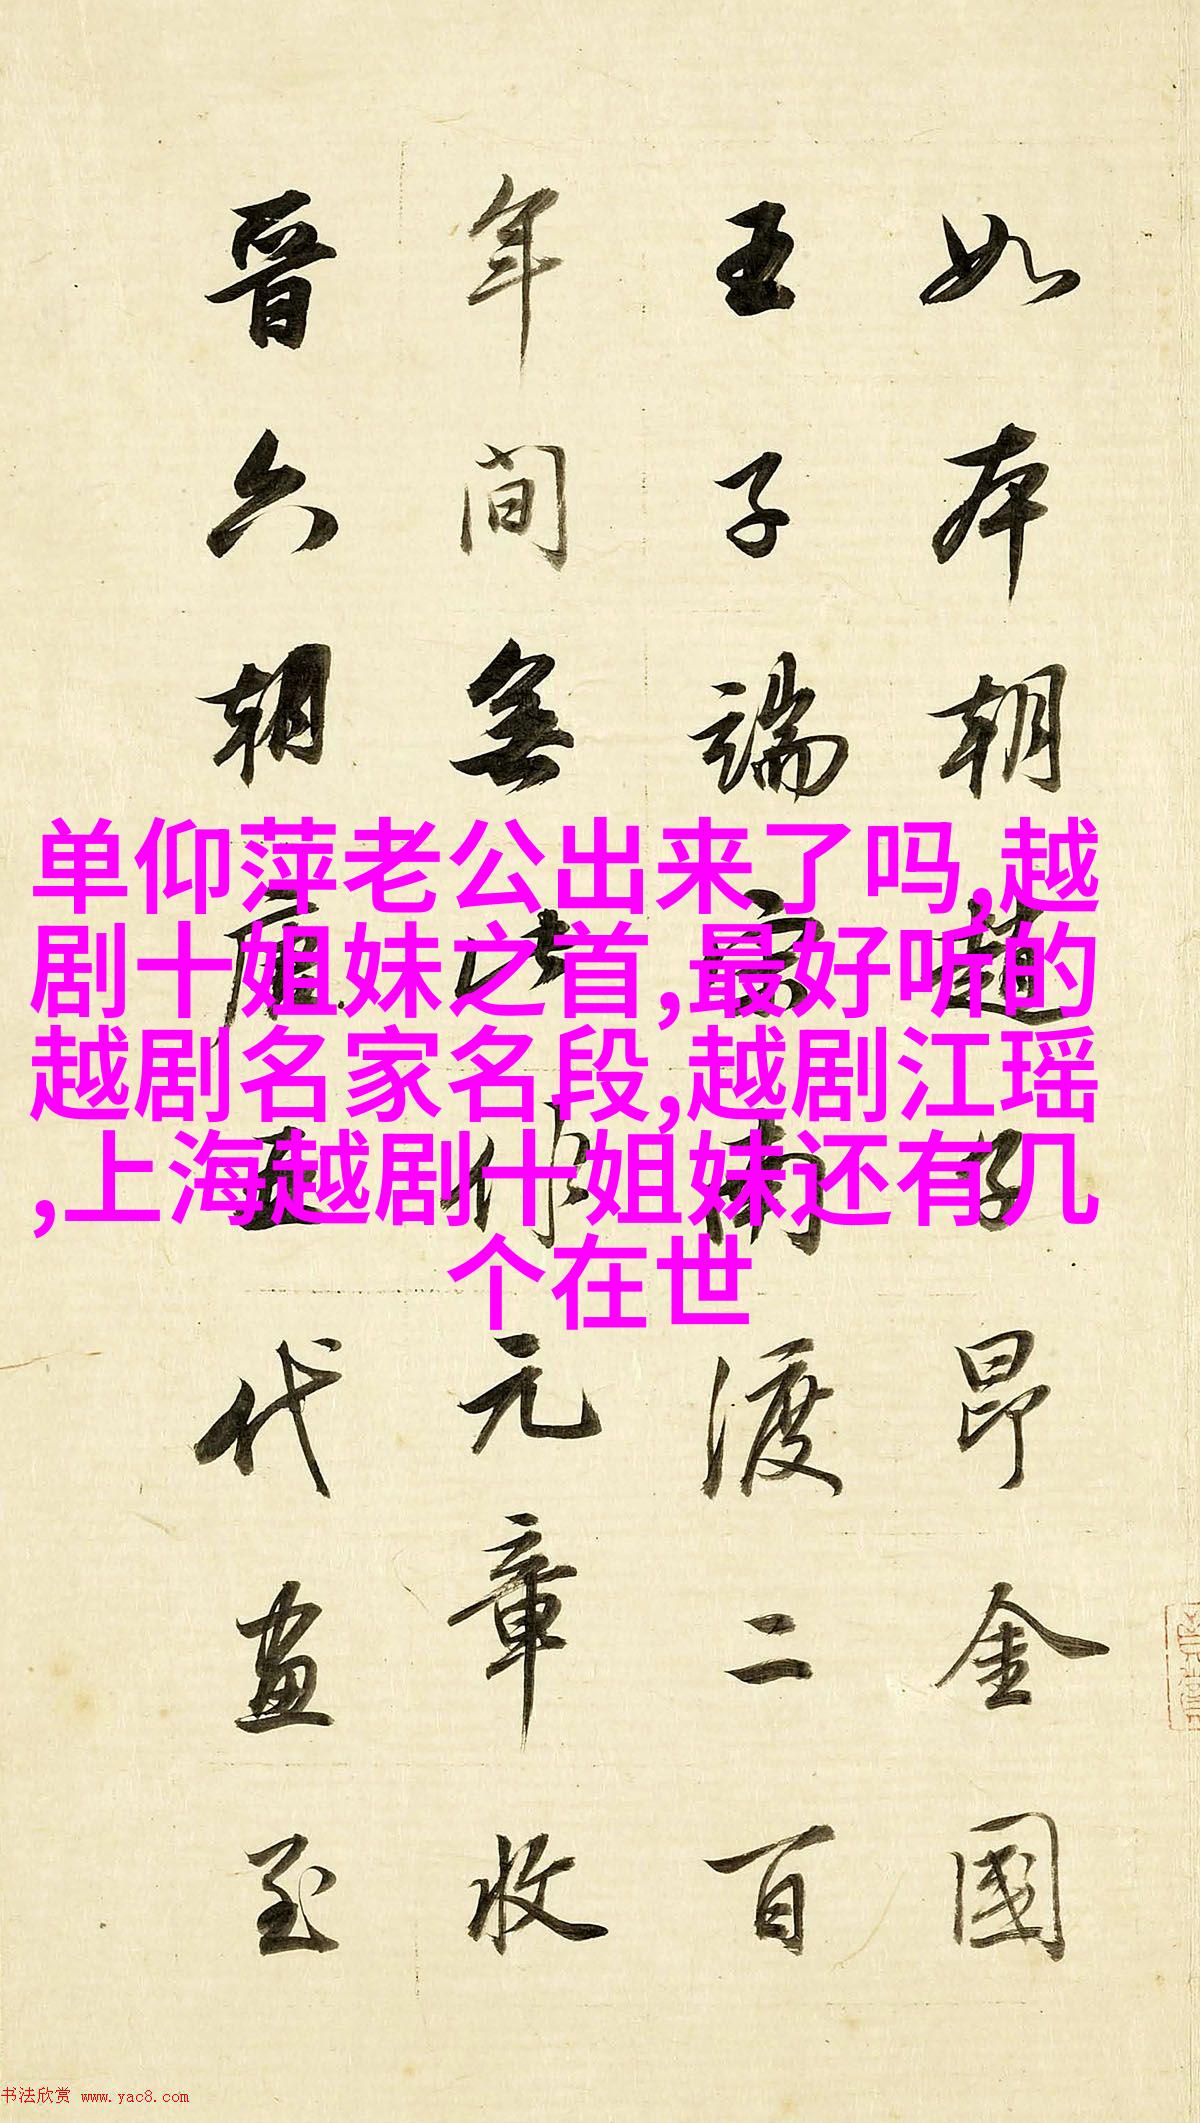 如本朝趙子昂金國
王子端宋南渡二百
年間無此作元章收
晉六朝唐五代畫至
单仰萍老公出来了吗,越
剧十姐妹之首,最好听的
越剧名家名段,越剧江瑶
,上海越剧十姐妹还有几
个在世
书法欣赏 www.yac8.com